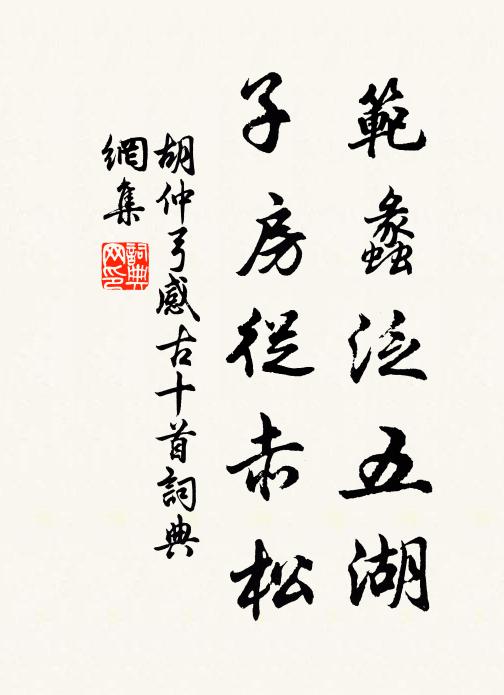 範蠡泛五湖
子房從赤松
胡仲弓感古十首詞典
網集
詞典网印